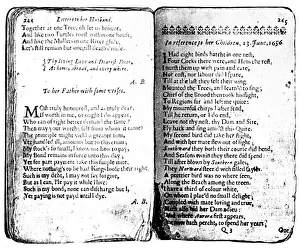 244 Letter to her Husband.
Together at one Tree, oh let us brouze,
And like two Turtles roost within one house,
And like the Mullets in one River glide,
Let's still remain but one, till death divide.
Thy loving Love and Dearest Dear,
At home, abroad, and every where.
A. B.
To her Father with some verses.
Most truly honoured, and as truly dear,
If worth in me, or ought I do appear,
Who can of right better demand the same?
Then may your worthy self from whom it came.
The principle might yield a greater sum,
Yet handled ill, amounts but to this crum;
My stock's so small, I know not how to pay,
My Bond remains in force unto this day;
Yet for part payment take this simple mite,
Where nothing's to be had Kings loose their right
Such is my debt, I may not say forgive,
But as I can, I'le pay it while I live:
Such is my bond, none can discharge but I,
Yet paying is not payd until I dye.
A. B.
245
In reference to her Children, 23. June, 1656.
I Had eight birds hatcht in one nest,
Four Cocks there were, and Hens the rest,
I nurst them up with pain and care,
Nor cost, nor labour did I spare,
Till at the last they felt their wing.
Mounted the Trees, and learn'd to sing;
Chief of the Brood then took his flight,
To Regions far, and left me quite:
My mournful chirps I after send,
Till he return, or I do end,
Leave not thy nest, thy Dam and Sire,
Fly back and sing amidst this Quire.
My second bird did take her flight,
And with her mate flew out of sight;
Southward they both their course did bend,
And Seasons twain they there did spend:
Till after blown by Southern gales,
They Norward steer'd with filled sayles.
A prettier bird was no where seen,
Along the Beach among the treen.
I have a third of colour white,
On whom I plac'd no small delight;
Coupled with mate loving and true,
Hath also bid her Dam adieu:
And where Aurora first appears,
She now hath percht, to spend her years;
Q 3
One